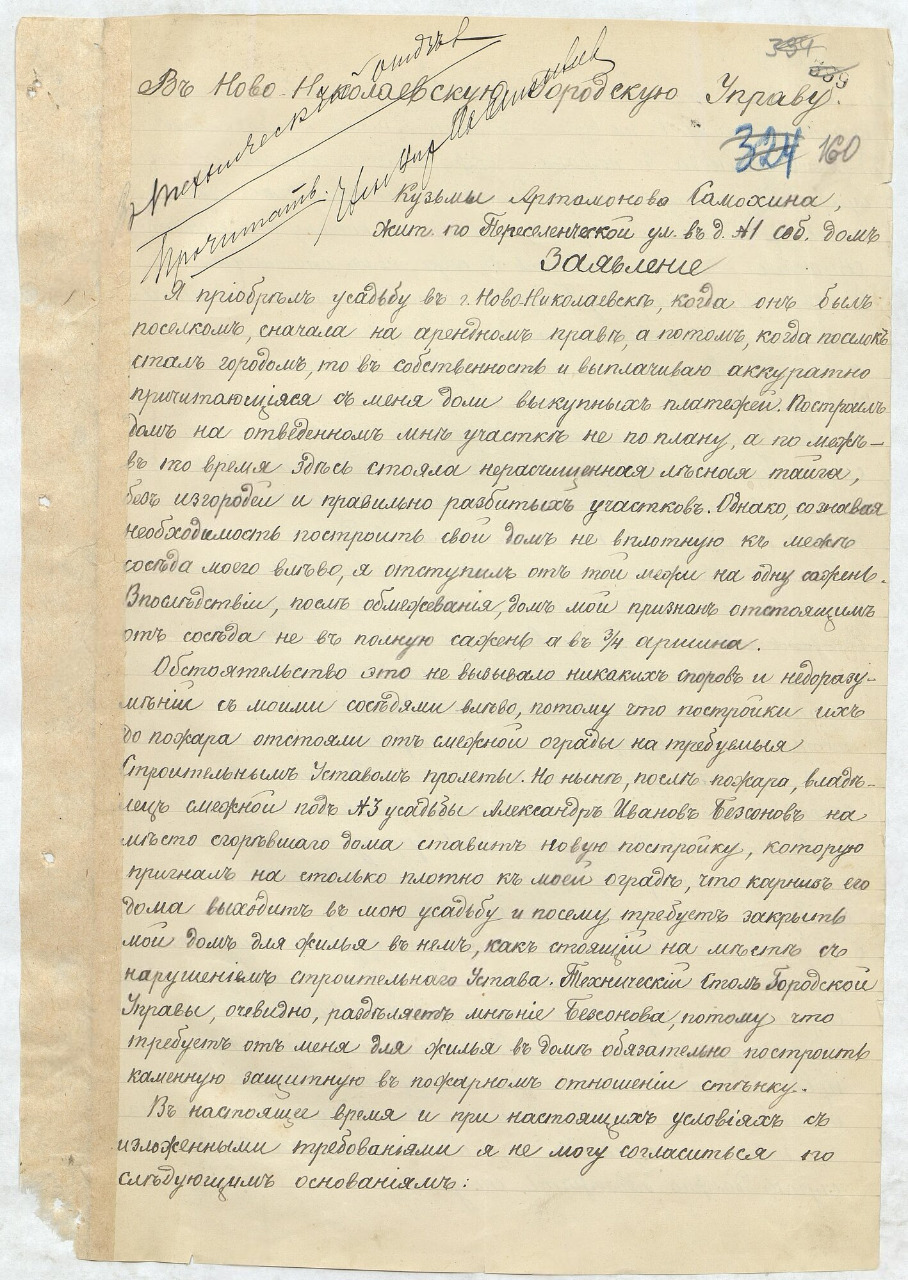 339
339
Въ Ново-Николаевскую Городскую Управу.
324 160
въ технический отдѣлъ
Прочитать.
Кузьмы Артамонова Самохина,
жит. по Переселенческой ул. въ д. №1 соб. домъ
Заявленіе
Я пріобрѣлъ усадьбу въ г. Ново-Николаевскѣ, когда онъ былъ
поселкомъ, сначала на арендномъ правѣ, а потомъ, когда поселокъ
сталъ городомъ, то въ собственность и выплачиваю аккуратно
причитающіяся съ меня доли выкупныхъ платежей. Построилъ
домъ на отведенномъ мнѣ участкѣ не по плану, а по межѣ-
въ то время здѣсь стояла нерасчищенная лѣсная тайга,
безъ изгородей и правильно разбитыхъ участковъ. Однако, сознавая
необходимость построить свой домъ не вплотную къ межѣ
сосѣда моего влѣво, я отступилъ отъ той межи на одну сажень.
Впослѣдствіи, послѣ обмежеванія, домъ мой признанъ отстоящимъ
отъ сосѣда не въ полную сажень а въ 3/4 аршина.
Обстоятельство это не вызывало никакихъ споровъ и недоразу-
мѣній съ моими сосѣдями влѣво, потому что постройки ихъ
до пожара отстояли отъ смежной ограды на требуемыя
Строительнымъ Уставомъ пролеты. Но нынѣ, послѣ пожара, владѣ-
лецъ смежной подъ №3 усадьбы Александръ Ивановъ Безсоновъ на
мѣсто сгорѣвшаго дома ставитъ новую постройку, которую
пригналъ на столько плотно къ моей оградѣ, что карнизъ его
дома выходитъ въ мою усадьбу и посему требуетъ закрыть
мой домъ для жилья въ немъ, какъ стоящій на мѣстѣ съ
нарушеніемъ строительнаго Устава. Техническій Столъ Городской
Управы, очевидно, раздѣляетъ мнѣніе Безсонова, потому что
требуетъ отъ меня для жилья въ домѣ обязательно построить
каменную защитную въ пожарномъ отношеніи стѣнку.
Въ настоящее время и при настоящихъ условіяхъ съ
изложенными требованіями я не могу согласиться по
слѣдующимъ основаніямъ: